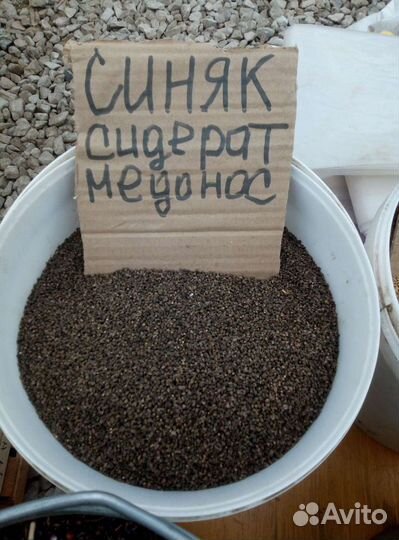 СИНЯК
сидерат
медонос
Avito